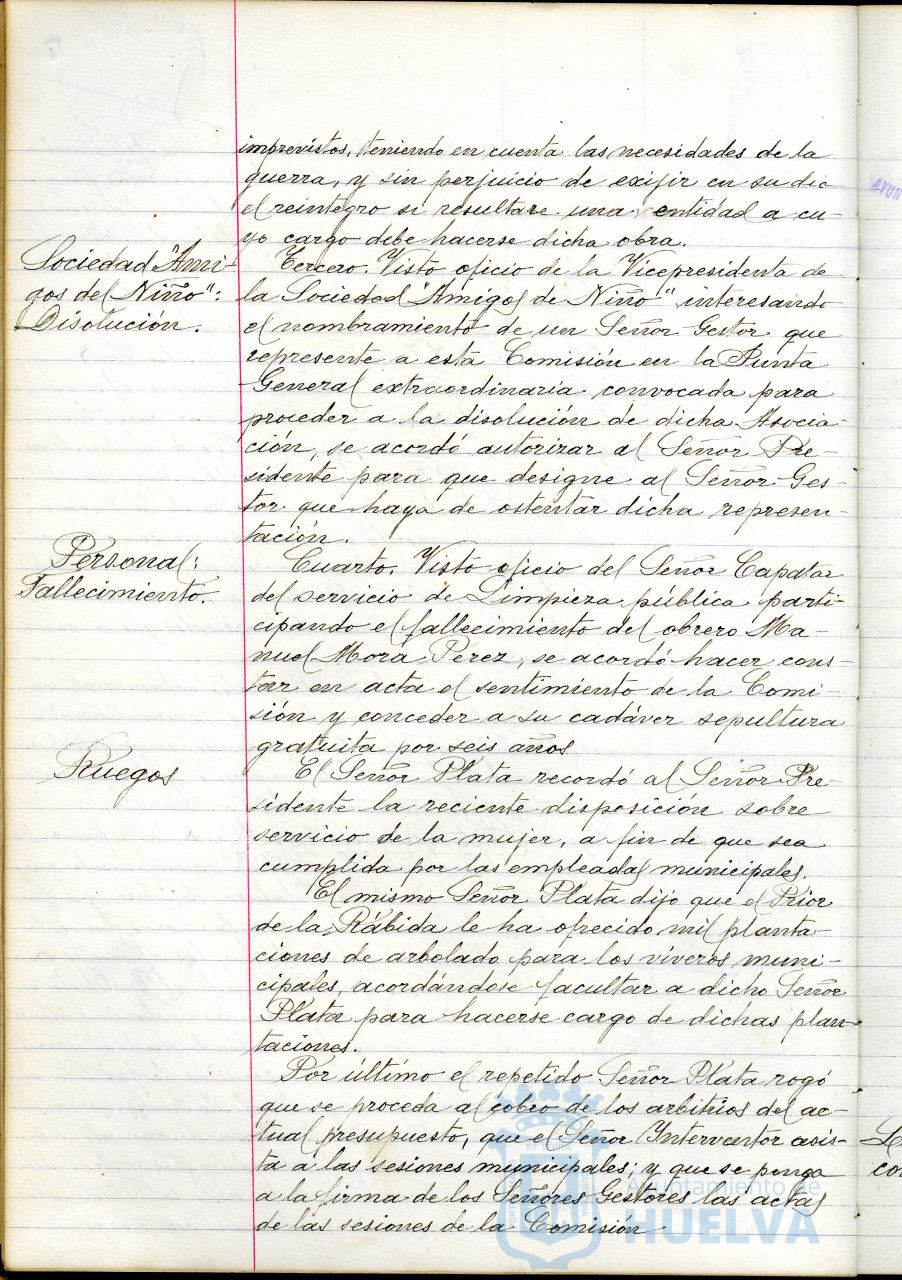 imprevistos, teniendo en cuenta las necesidades de la
guerra, y sin perjuicio de exijir en su dia
el reintegro si resultare una entidad a cu-
yo cargo debe hacerse dicha obra.
Sociedad "Ami-
gos del Niño":
Disolución.
Tercero. Visto oficio de la Vicepresidenta de
la Sociedad "Amigos de Niño" interesando
el nombramiento de un Señor Gestor que
represente a esta Comisión en la Junta
General extraordinaria convocada para
proceder a la disolución de dicha Asocia-
ción, se acordó autorizar al Señor Pre-
sidente para que designe al Señor Ges-
tor que haya de ostentar dicha represen-
tación.
Personal:
Fallecimiento.
Cuarto. Visto oficio del Señor Capataz
del servicio de Limpieza pública parti-
cipando el fallecimiento del obrero Ma-
nuel Mora Perez, se acordó hacer cons-
tar en acta el sentimiento de la Comi-
sión y conceder a su cadáver sepultura
gratuita por seis años
Ruegos
El Señor Plata recordó al Señor Pre-
sidente la reciente disposición sobre
servicio de la mujer, a fin de que sea
cumplida por las empleadas municipales.
El mismo Señor Plata dijo que el Prior
de la Rábida le ha ofrecido mil planta-
ciones de arbolado para los viveros muni-
cipales, acordándose facultar a dicho Señor
Plata para hacerse cargo de dichas plan-
taciones.
Por último el repetido Señor Plata rogó
que se proceda al cobro de los arbitrios del ac-
tual presupuesto, que el Señor Interventor asis-
ta a las sesiones municipales; y que se ponga
a la firma de los Señores Gestores las actas
de las sesiones de la Comisión
Ayuntamiento de
HUELVA
AYUN